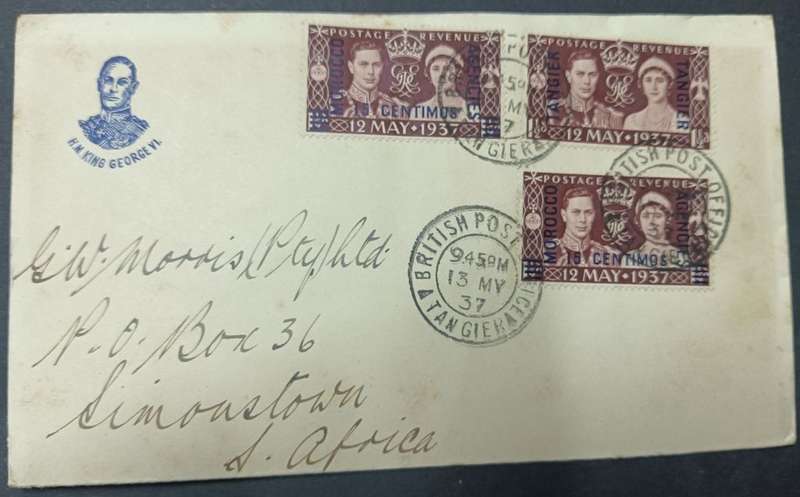 H.M. KING GEORGE VI.
POSTAGE REVENUE
MOROCCO AGENCIES
15 CENTIMOS
12 MAY · 1937
POSTAGE REVENUE
TANGIER TANGIER
12 MAY · 1937
POSTAGE REVENUE
MOROCCO AGENCIES
15 CENTIMOS
12 MAY · 1937
TANGIER
37
BRITISH POST OFFICE
BRITISH POST OFFICE
9.45 PM
13 MY
37
TANGIER
G.W. Morris (Pty) Ltd
P.O. Box 36
Simonstown
S. Africa